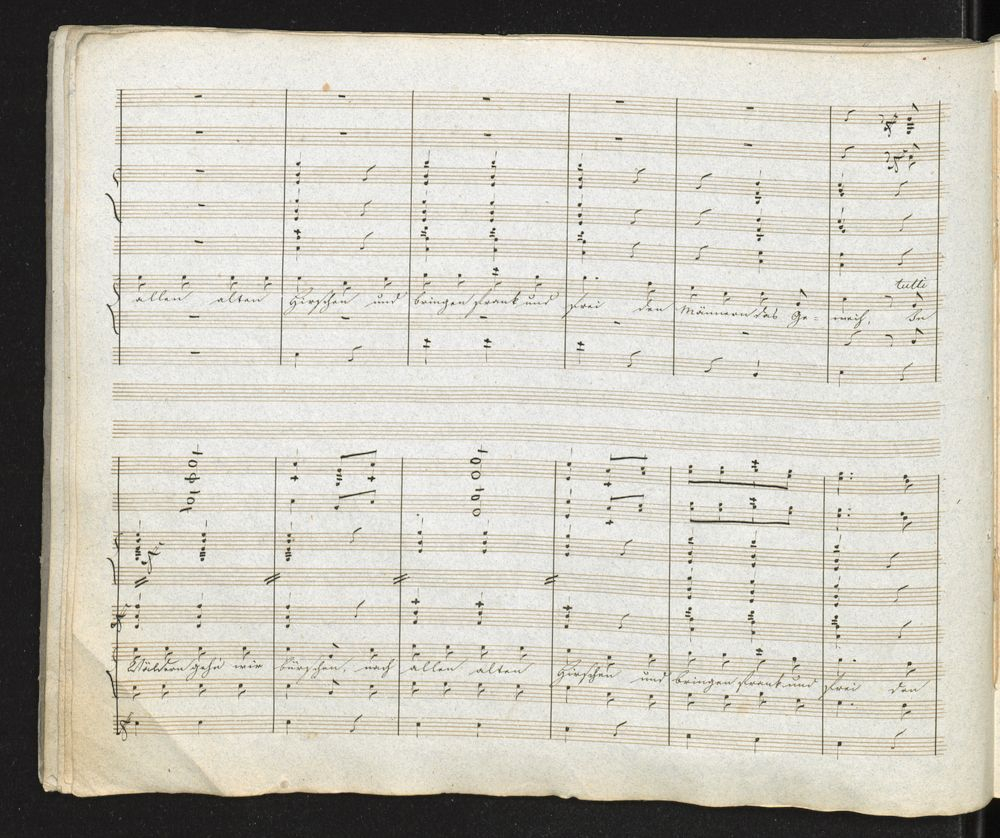 tutti
allen alten Hirschen und bringen frank und frei den Männern das Ge- weih, In
Wäldern gehn wir bürschen, nach allen alten Hirschen und bringen frank und frei den